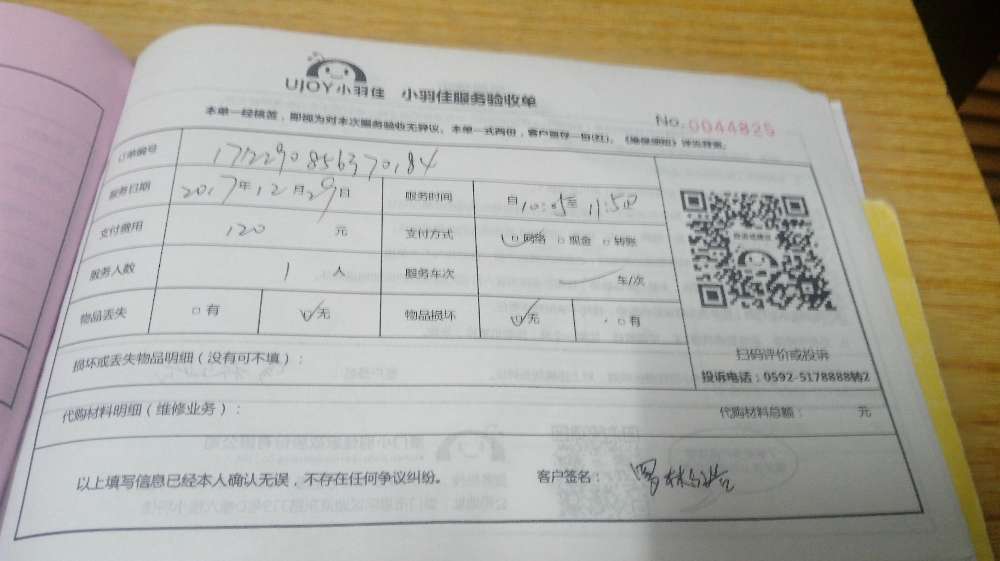 UJOY小羽佳 小羽佳服务验收单
本单一经核签，即视为对本次服务验收无异议。本单一式两份，客户留存一份(红)。
No. 0044825
订单编号 172290856370184
服务日期 2017年12月29日 服务时间 自10:05至11:50
支付费用 120 元 支付方式 网络 现金 转账
服务人数 1 人 服务车次 车/次
物品丢失 有 无 物品损坏 无 有
扫码评价或投诉
投诉电话：0592-5178888转2
损坏或丢失物品明细（没有可不填）：
代购材料明细（维修业务）： 代购材料总额： 元
以上填写信息已经本人确认无误，不存在任何争议纠纷。 客户签名：